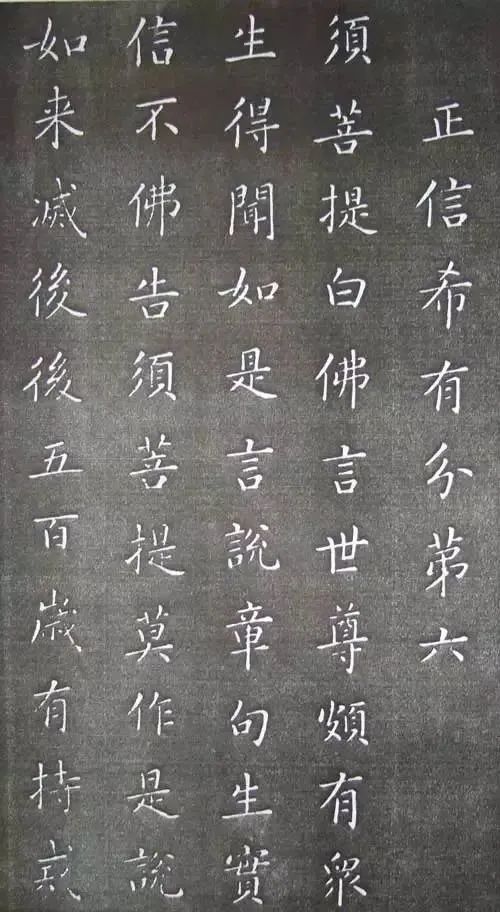 正信希有分苐六
須菩提白佛言世尊頗有衆
生得聞如是言説章句生實
信不佛告須菩提莫作是説
如来滅後後五百歳有持戒